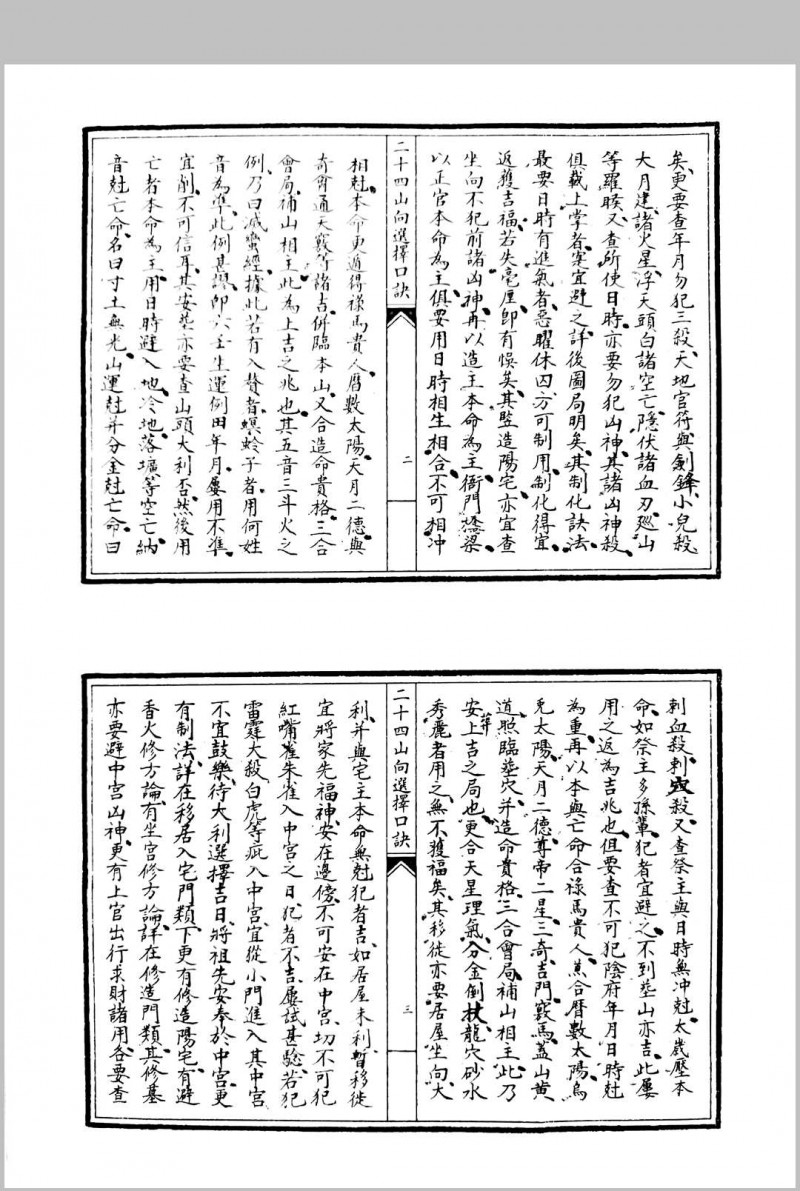 矣更要查年月勿犯三殺天地官符與劍鋒小兒殺
大月建諸火星浮天頭白諸空亡隱伏諸血刃廵山
等羅睺又查所使日時亦要勿犯凶神其諸凶神殺
俱載上掌者宲宜避之詳後圖局明矣其制化訣法
最要日時有進氣者惡曜休囚方可制用制化得宜
返獲吉福若失毫厘即有悞矣其豎造陽宅亦宜查
坐向不犯前諸凶神再以造主本命為主衙門
以正官本命為主俱要用日時相生相合不可相冲
二十四山向選擇口訣
二
相尅本命更遁得祿馬貴人曆數太陽天月二德與
奇竅通天竅等諸吉併臨本山又合造命貴格三合
會局補山相主此為上吉之兆也其五音三斗火之
例乃曰滅蠻經據此若有入贅者螟蛉子者用何姓
音為準此例甚謬即六壬生運例田年月屢用不準
宜削不可信耳其安塟亦要查山頭大利否然後用
亡者本命為主用日時避入地冷地落壙等空亡納
音尅亡命名曰寸土無光山運尅并分金尅亡命曰
刺血殺刺殺又查祭主與日時無冲尅太歲壓本
命如祭主多孫輩犯者宜避之不到塟山亦吉此屢
用之返為吉兆也但要查不可犯陰府年月日時尅
為重再以本與亡命合祿馬貴人蔫合曆數太陽烏
兎太陽天月二德尊帝二星三奇吉門竅馬蓋山黃
道照臨塟穴并造命貴格三合會局補山相主此乃
安葬上吉之局也更合天星理氣分金倒杖龍穴砂水
秀麗者用之無不獲福矣其移徙亦要居屋坐向大
二十四山向選擇口訣
三
利并與宅主本命無尅犯者吉如居屋未利暫移徙
宜將家先福神安在邊傍不可安在中宮切不可犯
紅嘴雀朱雀入中宮之日犯者不吉屢試甚驗若犯
雷霆大殺白虎等疵入中宮宜從小門進入其中宮
不宜鼓樂待大利選擇吉日將祖先安奉於中宮更
有制法詳在移居入宅門類下更有修造陽宅有避
香火修方論有坐宮修方論詳在修造門類其修墓
亦要避中宮凶神更有上官出行求財諸用各要查